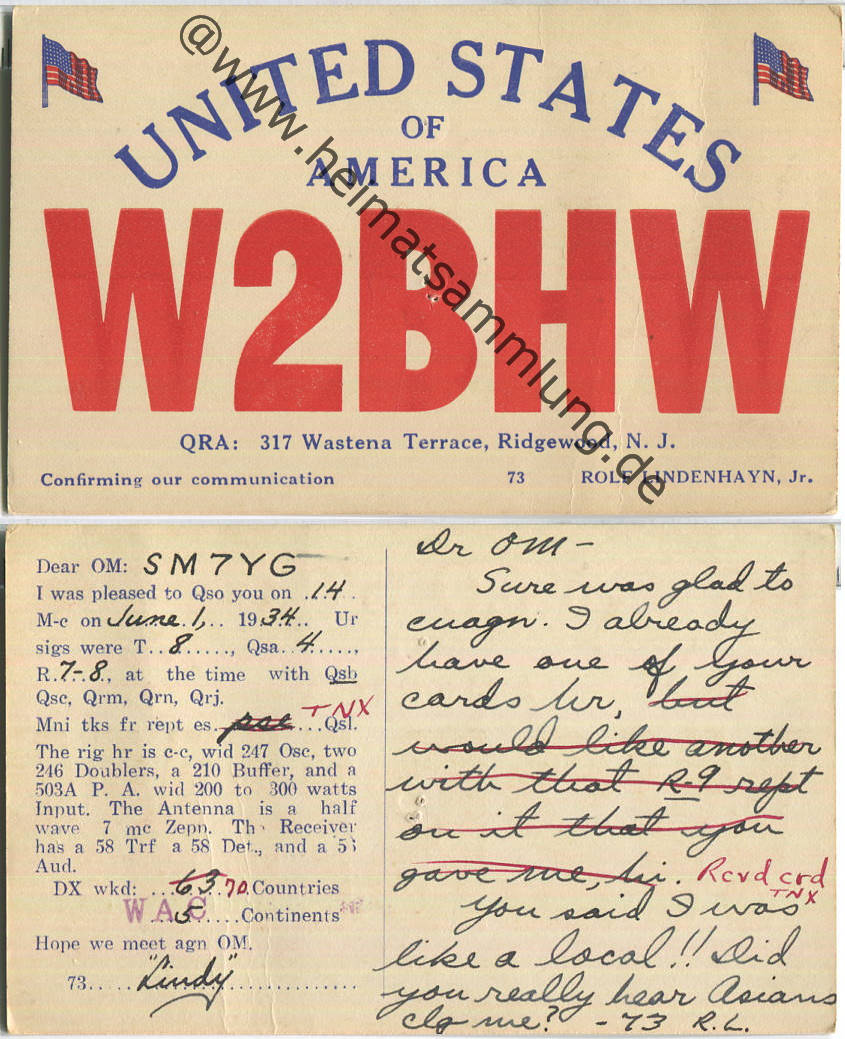 UNITED STATES
OF
AMERICA
W2BHW
QRA: 317 Wastena Terrace, Ridgewood, N. J.
Confirming our communication 73 ROLF LINDENHAYN, Jr.
@www.heimatsammlung.de
Dear OM: SM7YG
I was pleased to Qso you on .14.
M-c on June.1,.. 1934.. Ur
sigs were T..8....., Qsa..4....,
R.7-8., at the time with Qsb
Qsc, Qrm, Qrn, Qrj.
TNX
Mni tks fr rept es..pse...Qsl.
The rig hr is c-c, wid 247 Osc, two
246 Doublers, a 210 Buffer, and a
503A P. A. wid 200 to 300 watts
Input. The Antenna is a half
wave 7 mc Zepp. The Receiver
has a 58 Trf a 58 Det., and a
Aud.
DX wkd: ...63.70.Countries
WAC
...5....Continents
Hope we meet agn OM.
73....."Lindy"..............
Dr OM-
Sure was glad to
cuagn. I already
have one of your
cards hr, but
would like another
with that R-9 rept
on it that you
gave me, hi. Rcvd crd
TNX
You said I was
like a local!! Did
you really hear Asians
clg me? -73 R.L.